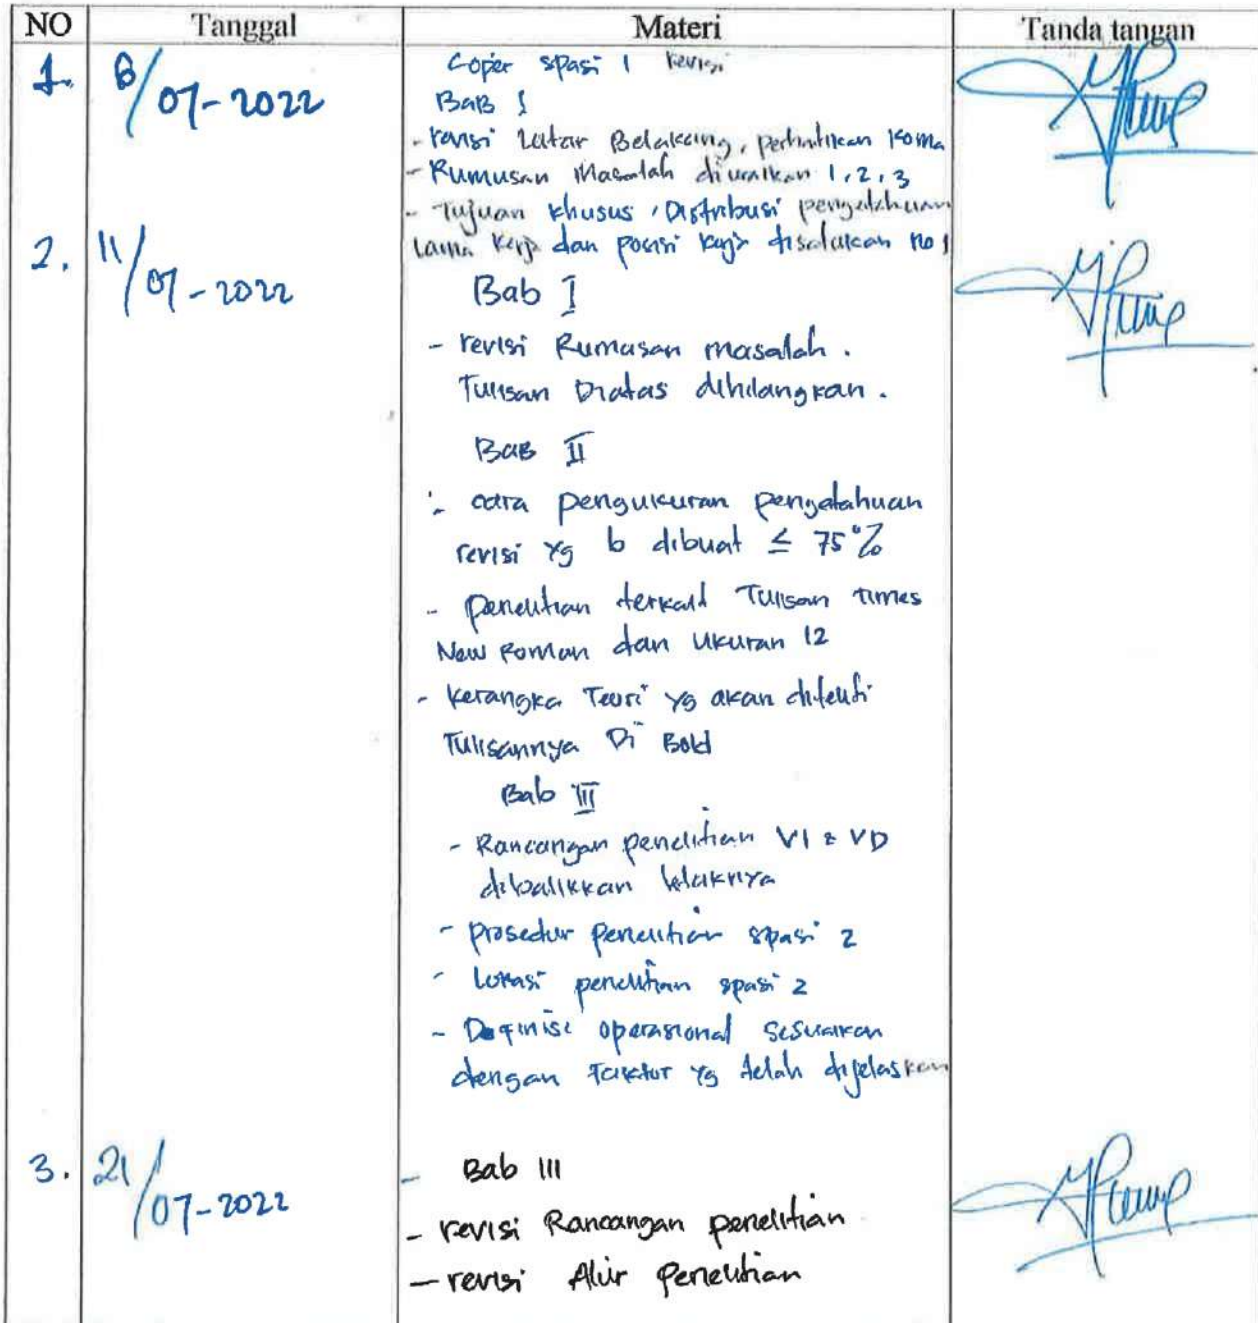 NO Tanggal Materi Tanda tangan
1. 8/07-2022 Coper spasi 1 revisi
BaB I
- revisi Latar Belakang, perhatikan Koma
- Rumusan Masalah diuraikan 1, 2, 3
- Tujuan khusus, Distribusi pengetahuan
lama kerja dan posisi kerja disatukan no 1
2. 11/07-2022
Bab I
- revisi Rumusan masalah.
Tulisan Diatas dihilangkan.
BaB II
- cara pengukuran pengetahuan
revisi yg b dibuat ≤ 75%
- penelitian terkait Tulisan times
New Roman dan Ukuran 12
- kerangka Teori yg akan diteliti
Tulisannya Di Bold
Bab III
- Rancangan penelitian VI & VD
dibalikkan letaknya
- prosedur penelitian spasi 2
- Lokasi penelitian spasi 2
- Definisi operasional sesuaikan
dengan Faktor yg telah dijelaskan
3. 21/07-2022 - Bab III
- revisi Rancangan penelitian
- revisi Alur Penelitian